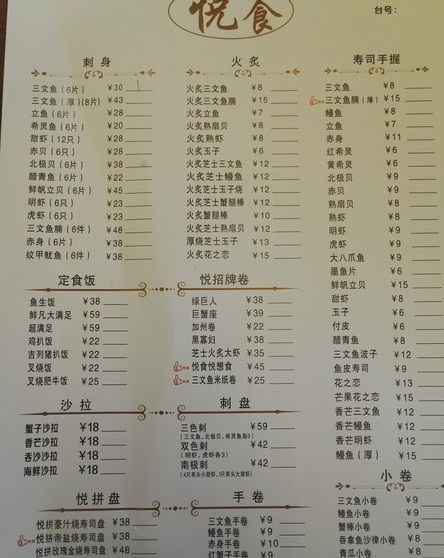 悦食
台号：
刺身
三文鱼（6片） ¥30
三文鱼（厚）(8片) ¥43
立鱼（6片） ¥28
希灵鱼（6片） ¥20
甜虾（12只） ¥28
赤贝（6片） ¥28
北极贝（6片） ¥38
醋青鱼（6片） ¥38
鲜帆立贝（6片） ¥45
明虾（6只） ¥23
虎虾（6只） ¥23
三文鱼腩（6件） ¥48
赤身（6片） ¥38
纹甲鱿鱼（6片） ¥38
火炙
火炙三文鱼 ¥8
火炙三文鱼腩 ¥15
火炙立鱼 ¥7
火炙熟扇贝 ¥8
火炙熟虾 ¥8
火炙玉子 ¥6
火炙芝士三文鱼 ¥12
火炙芝士鳗鱼 ¥12
火炙芝士玉子烧 ¥10
火炙芝士蟹腿棒 ¥12
火炙蟹腿棒 ¥10
火炙芝士熟扇贝 ¥12
厚烧芝士玉子 ¥13
火炙花之恋 ¥15
寿司手握
三文鱼 ¥8
三文鱼腩（厚） ¥15
鳗鱼 ¥8
立鱼 ¥7
赤身 ¥11
红希灵 ¥6
黄希灵 ¥6
北极贝 ¥9
赤贝 ¥9
熟扇贝 ¥8
熟虾 ¥8
明虾 ¥9
虎虾 ¥9
大八爪鱼 ¥9
墨鱼片 ¥6
鲜帆立贝 ¥15
甜虾 ¥8
玉子 ¥6
付皮 ¥6
醋青鱼 ¥8
三文鱼波子 ¥12
鱼皮寿司 ¥9
花之恋 ¥13
芒果花之恋 ¥15
香芒三文鱼 ¥12
香芒鳗鱼 ¥12
香芒明虾 ¥12
鳗鱼（厚） ¥15
定食饭
鱼生饭 ¥38
鲜凡大满足 ¥59
超满足 ¥59
鸡扒饭 ¥22
吉列猪扒饭 ¥22
叉烧饭 ¥22
叉烧肥牛饭 ¥25
悦招牌卷
绿巨人 ¥38
巨蟹座 ¥39
加州卷 ¥22
黑寡妇 ¥38
芝士火炙大虾 ¥35
悦食悦想食 ¥45
三文鱼米纸卷 ¥25
沙拉
蟹子沙拉 ¥18
香芒沙拉 ¥18
吞沙沙拉 ¥18
海鲜沙拉 ¥18
刺盘
三色刺 ¥59
(三文鱼、北极贝、希灵鱼各3)
双色刺 ¥42
(明虾、虎虾各3)
南极刺 ¥42
小卷
三文鱼小卷 ¥9
鳗鱼小卷 ¥9
蟹棒小卷 ¥9
吞拿鱼沙律小卷 ¥8
青瓜小卷 ¥8
悦拼盘
悦拼豪汁烧寿司盘 ¥38
悦拼帝盐烧寿司盘 ¥38
悦拼玫瑰金烧寿司盘 ¥48
手卷
三文鱼手卷 ¥9
鳗鱼手卷 ¥9
赤身手卷 ¥10
红蟹子手卷 ¥9